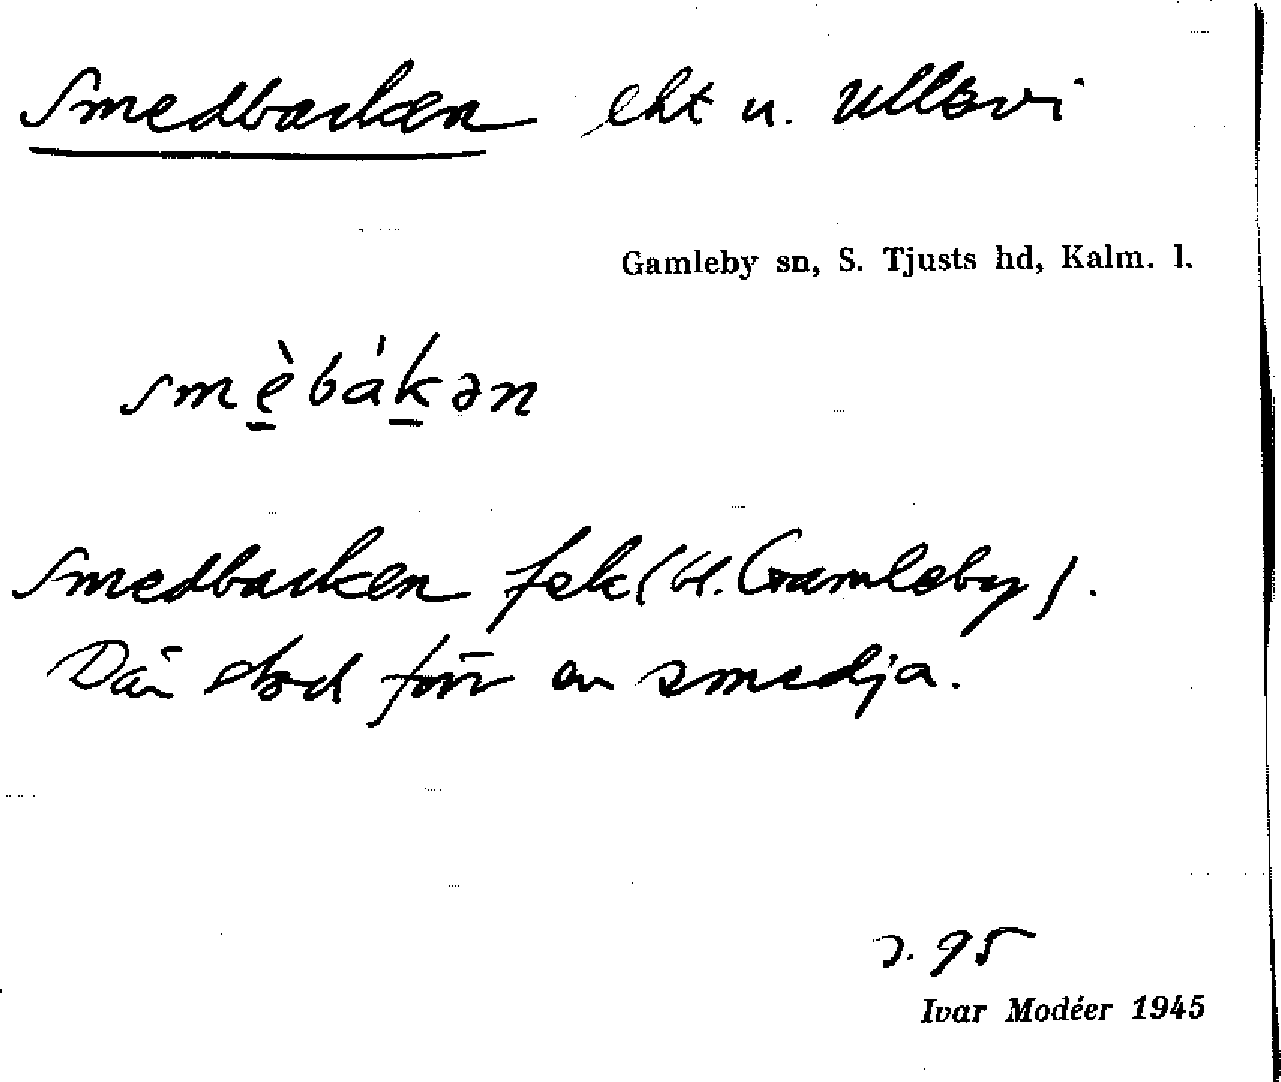 Smedbacken lht u. Ullevi
Gamleby sn, S. Tjusts hd, Kalm. l.
smèbákən
Smedbacken fsk (bl. Gamleby).
Där stod förr en smedja.
s. 95
Ivar Modéer 1945